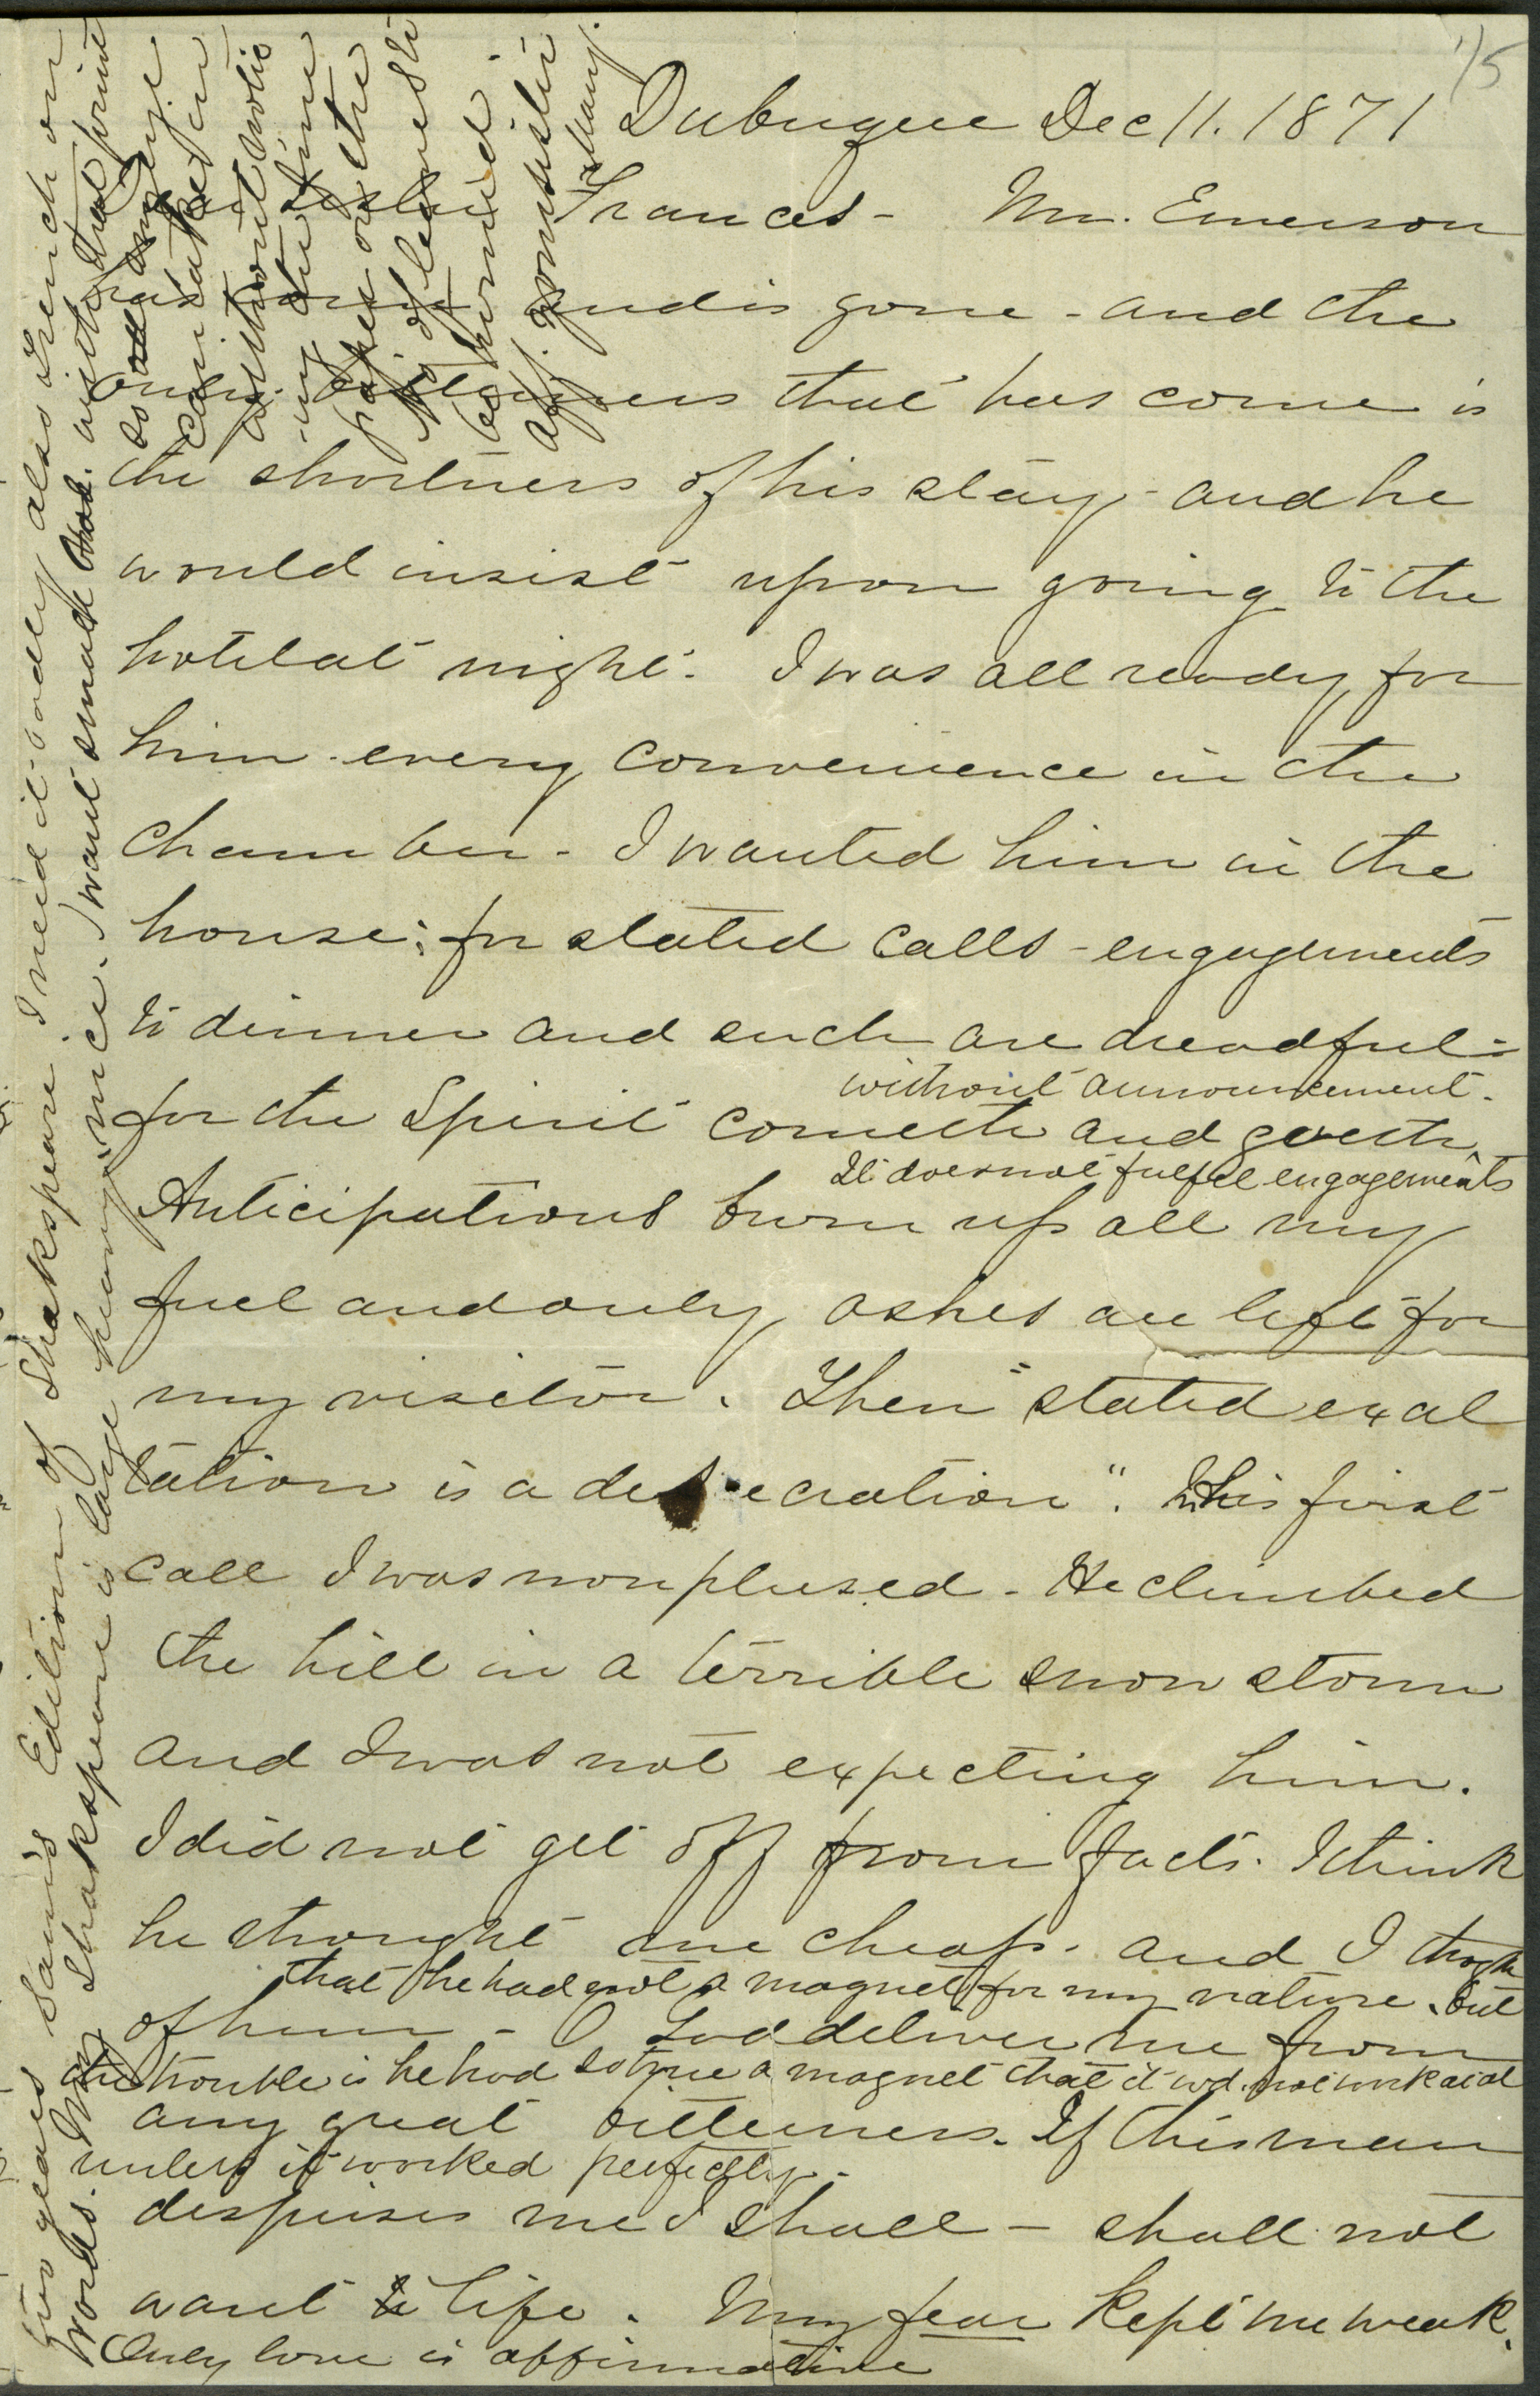 1/5
Dubuque Dec 11. 1871
Dear Sister Frances - Mr. Emerson
has come and is gone - and the
only bitterness that has come is
the shortness of his stay - and he
would insist upon going to the
hotel at night. I was all ready for
him - every convenience in the
chamber - I wanted him in the
house; for stated calls - engagements
to dinner and such are dreadful =
for the Spirit cometh and goeth
without announcement.
It does not fulfil engagements
Anticipations burn up all my
fuel and only ashes are left for
my visitor. Then "stated exal
tation is a desecration". In his first
call I was nonplused - He climbed
the hill in a terrible snow storm
and I was not expecting him.
I did not get off from facts. I think
he thought me cheap. and I thogh
that he had not a magnet for my nature. but
of him - O God deliver me from
the trouble is he had so true a magnet that it wd. not work at al
any great bitterness. If this man
unless it worked perfectly -
despises me I shall - shall not
want to life. My fear kept me weak.
Only love is affirmative
two years Sam's Edition of Shakspeare. I need it badly also French on
words. My Shakspeare is large heavy & nice. I want small book. with that print
so
can take in
without notic
ing the time
papers on the
of
be hurried.
Aff. Mary.